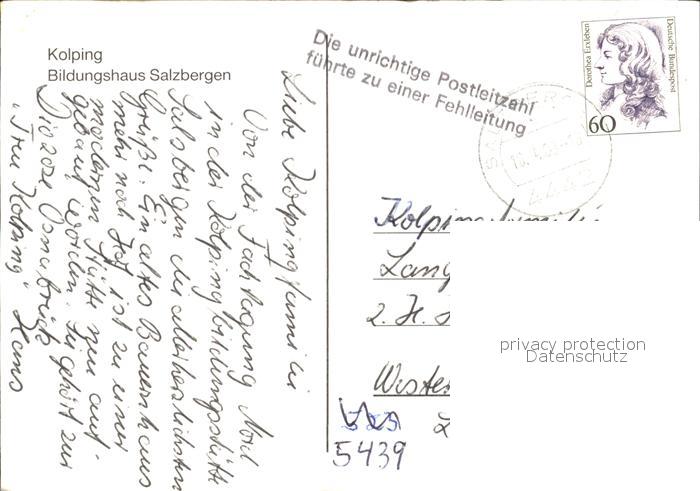 Kolping
Bildungshaus Salzbergen
Die unrichtige Postleitzahl
führte zu einer Fehlleitung
Dorothea Erxleben
Deutsche Bundespost
60
4442
Liebe Kolpingfamilie
Von der Fachtagung Nord
in der Kolpingbildungsstätte
Salzbergen die allerherzlichsten
Grüße. Ein altes Bauernhaus
mehr noch Hof ist zu einer
modernen Stätte neu auf-
gebaut worden. Sie gehört zur
Diözese Osnabrück
"Treu Kolping" Hans
2. H.
Wester
5439
privacy protection
Datenschutz